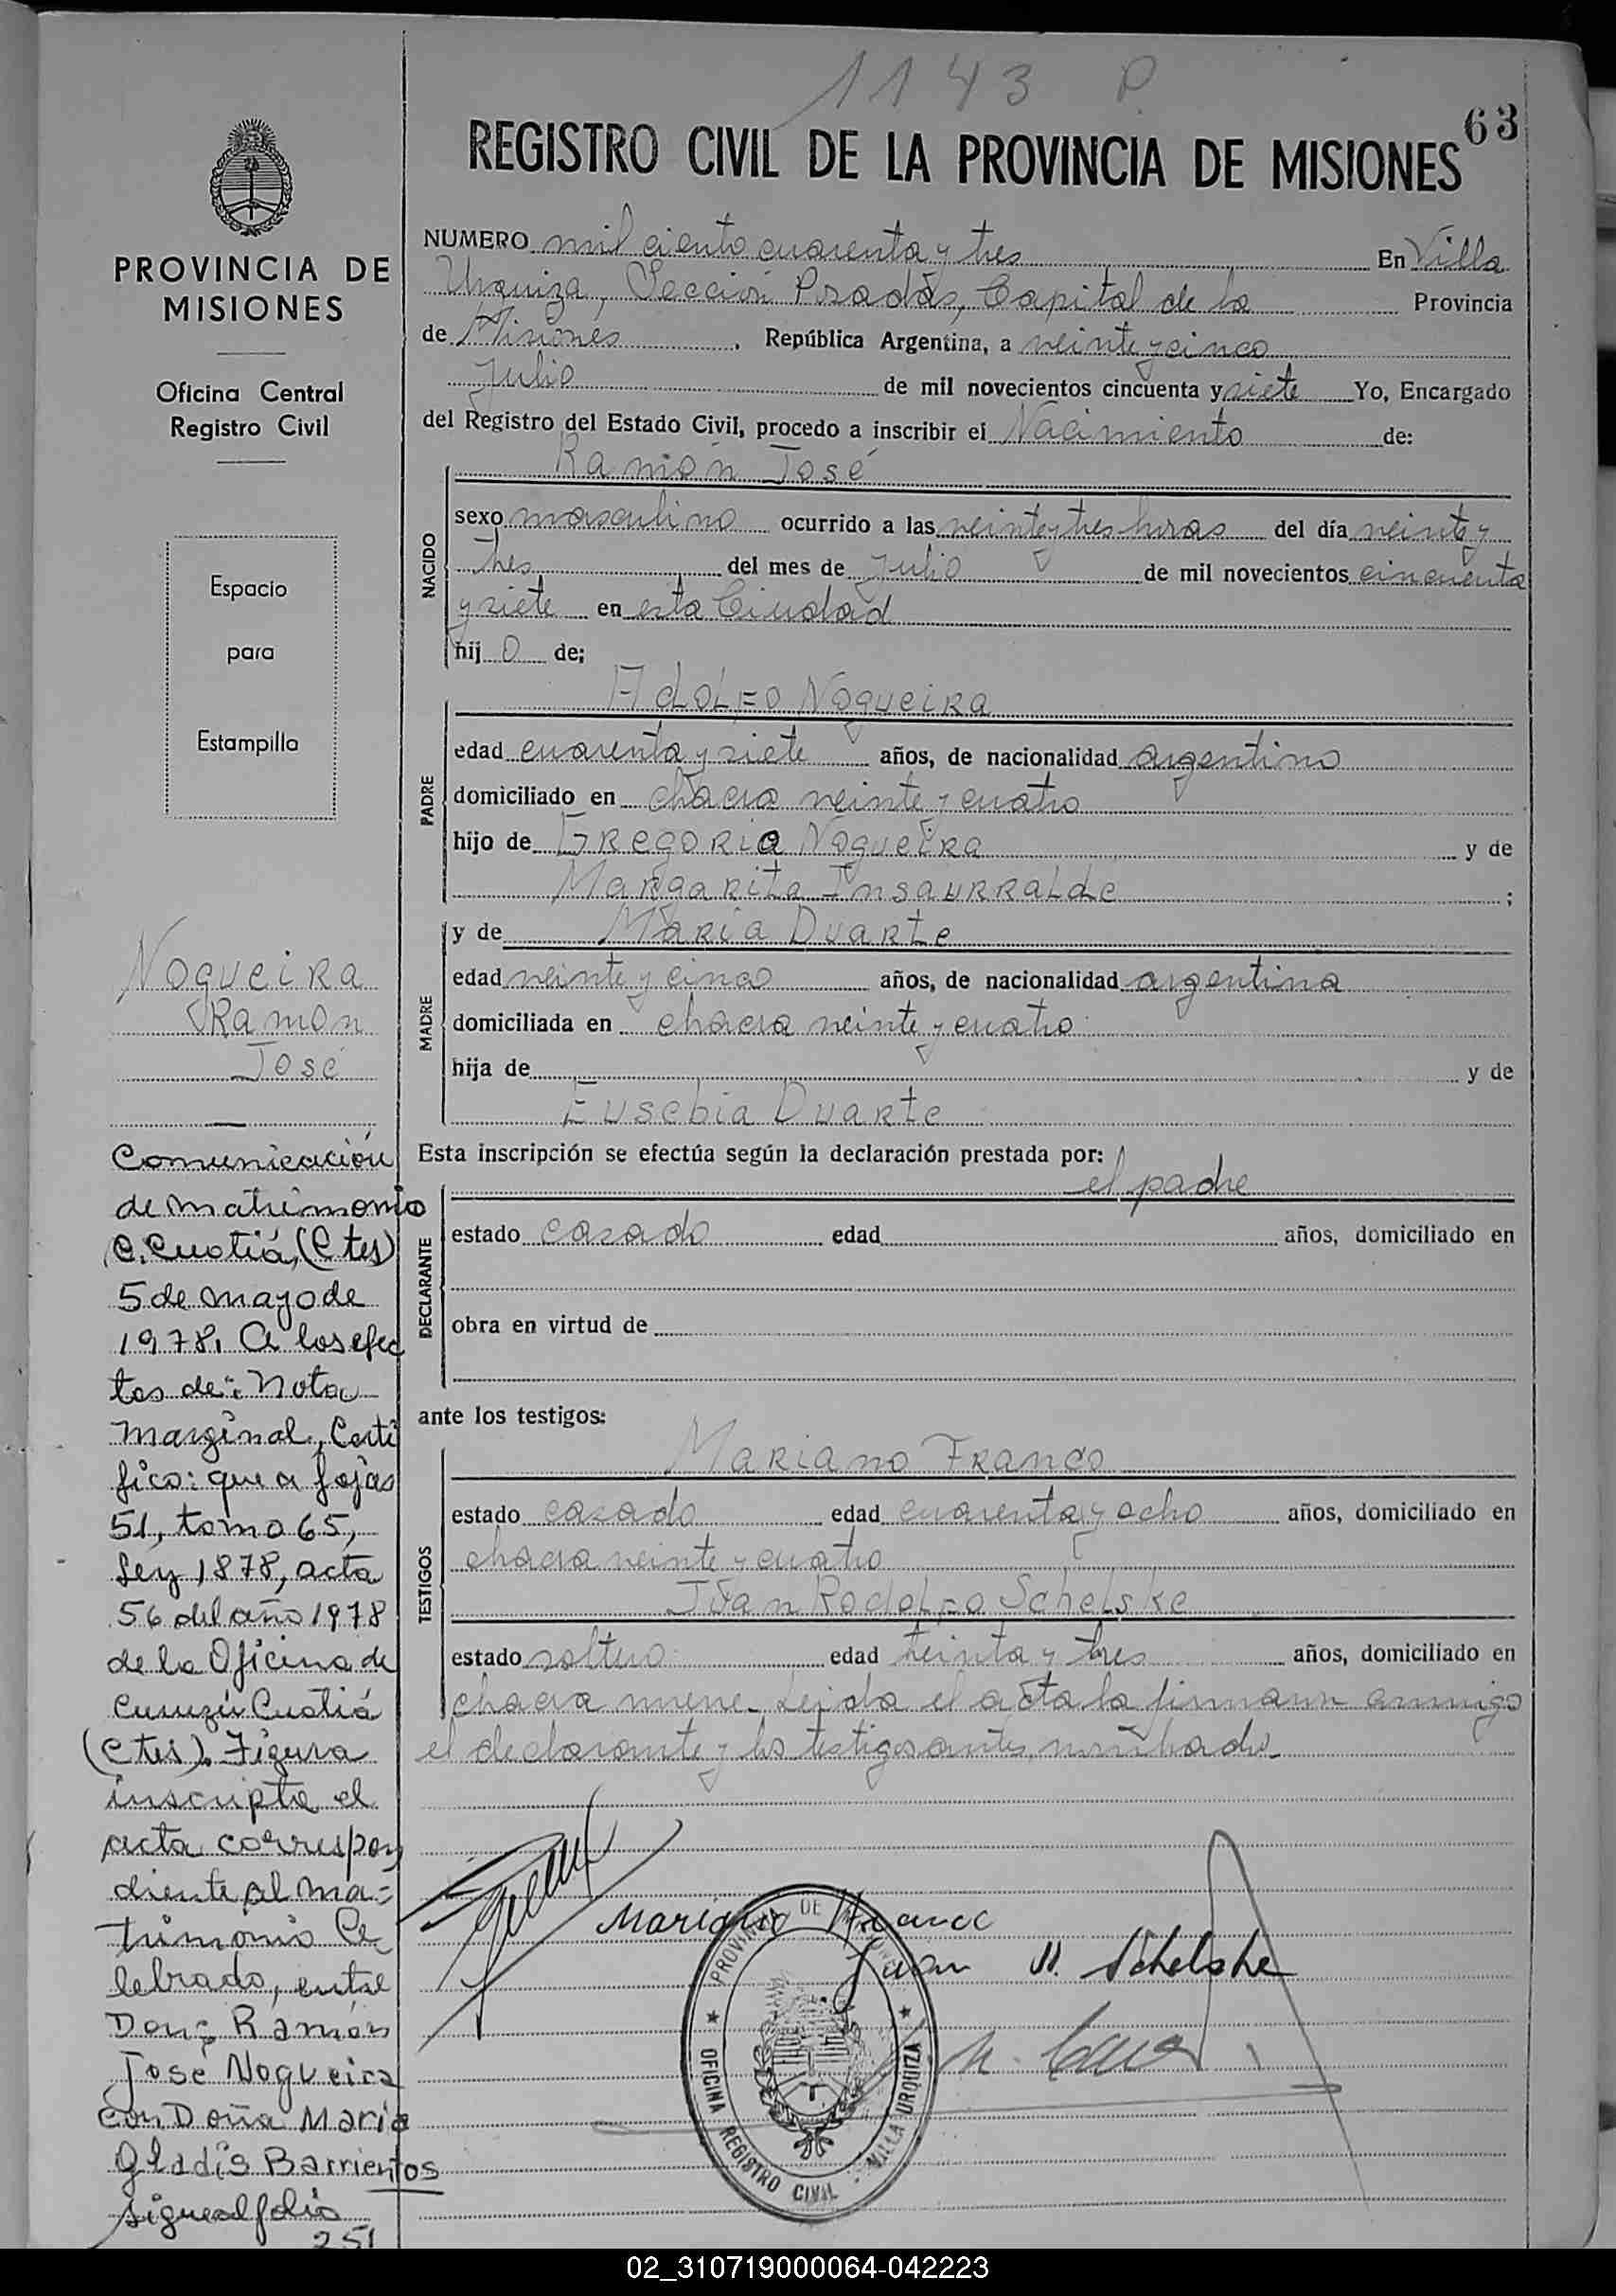 1143 P
63
REGISTRO CIVIL DE LA PROVINCIA DE MISIONES
PROVINCIA DE
MISIONES
Oficina Central
Registro Civil
Espacio
para
Estampilla
Nogueira
Ramon
José
Comunicación
de matrimonio
C. Cuatiá, (Ctes)
5 de mayo de
1978, A los efec
tos de: Nota
Marginal, Certi
fico: que a fojas
51, tomo 65,
Ley 1878, acta
56 del año 1978
de la Oficina de
Curuzú Cuatiá
(Ctes). Figura
inscripta el
acta correspon
diente al ma-
trimonio Ce
lebrado, entre
Don: Ramón
José Nogueira
con Doña Maria
Gladis Barrientos
sigue al folio
251
NUMERO mil ciento cuarenta y tres En Villa
Urquiza, Sección Posadas, Capital de la Provincia
de Misiones, República Argentina, a veinte y cinco
Julio de mil novecientos cincuenta y siete Yo, Encargado
del Registro del Estado Civil, procedo a inscribir el Nacimiento de:
Ramón José
NACIDO
sexo masculino ocurrido a las veinte y tres horas del día veinte y
tres del mes de Julio de mil novecientos cincuenta
y siete en esta Ciudad
hij o de;
Adolfo Nogueira
PADRE
edad cuarenta y siete años, de nacionalidad argentino
domiciliado en chacra veinte y cuatro
hijo de Gregorio Nogueira y de
Margarita Insaurralde ;
y de Maria Duarte
MADRE
edad veinte y cinco años, de nacionalidad argentina
domiciliada en chacra veinte y cuatro
hija de y de
Eusebia Duarte
Esta inscripción se efectúa según la declaración prestada por:
el padre
DECLARANTE
estado casado edad años, domiciliado en
obra en virtud de
ante los testigos:
Mariano Franco
TESTIGOS
estado casado edad cuarenta y ocho años, domiciliado en
chacra veinte y cuatro
Juan Rodolfo Schelske
estado soltero edad treinta y tres años, domiciliado en
chacra nueve. Leida el acta la firmaron conmigo
el declarante y los testigos antes nombrados
Mariano Franco
Juan R. Schelske
PROVINCIA DE MISIONES
OFICINA REGISTRO CIVIL VILLA URQUIZA
02_310719000064-042223